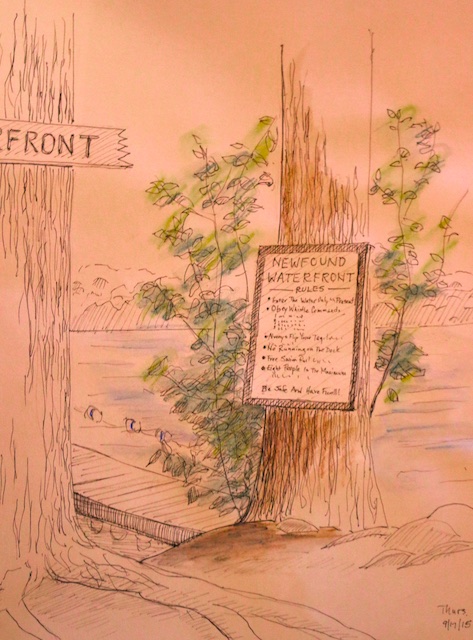 RFRONT
NEWFOUND
WATERFRONT
RULES
• Enter The Water Only
• Obey Whistle Commands
• Always Flip Your Tag
• No Running on the Dock
• Free Swim
• Eight People In The Maximum
Be Safe And Have Fun!!
Thurs,